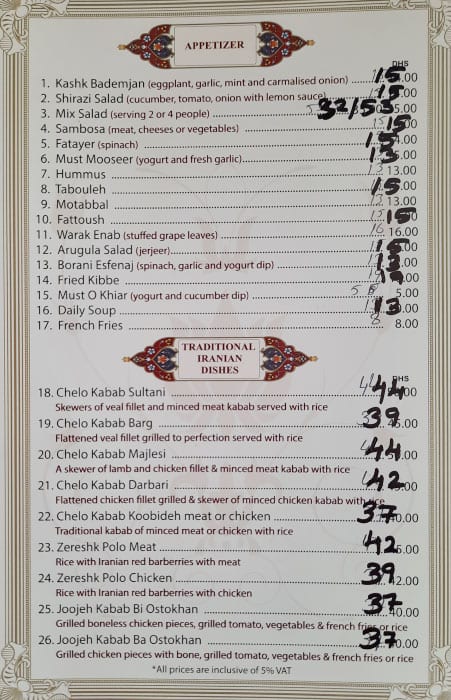 APPETIZER
DHS
1. Kashk Bademjan (eggplant, garlic, mint and carmalised onion) 15.00
2. Shirazi Salad (cucumber, tomato, onion with lemon sauce) 15.00
3. Mix Salad (serving 2 or 4 people) 32/53
4. Sambosa (meat, cheeses or vegetables) 15
5. Fatayer (spinach) 15
6. Must Mooseer (yogurt and fresh garlic) 13
7. Hummus 13.00
8. Tabouleh 15
9. Motabbal 13.00
10. Fattoush 15
11. Warak Enab (stuffed grape leaves) 16 16.00
12. Arugula Salad (jerjeer) 15
13. Borani Esfenaj (spinach, garlic and yogurt dip) 13
14. Fried Kibbe
15. Must O Khiar (yogurt and cucumber dip) 5.00
16. Daily Soup 13
17. French Fries 8 8.00
TRADITIONAL
IRANIAN
DISHES
DHS
18. Chelo Kabab Sultani 44
Skewers of veal fillet and minced meat kabab served with rice
19. Chelo Kabab Barg 39
Flattened veal fillet grilled to perfection served with rice
20. Chelo Kabab Majlesi 44
A skewer of lamb and chicken fillet & minced meat kabab with rice
21. Chelo Kabab Darbari 42
Flattened chicken fillet grilled & skewer of minced chicken kabab with rice
22. Chelo Kabab Koobideh meat or chicken 37
Traditional kabab of minced meat or chicken with rice
23. Zereshk Polo Meat 42
Rice with Iranian red barberries with meat
24. Zereshk Polo Chicken 39
Rice with Iranian red barberries with chicken
25. Joojeh Kabab Bi Ostokhan 37
Grilled boneless chicken pieces, grilled tomato, vegetables & french fries or rice
26. Joojeh Kabab Ba Ostokhan 37
Grilled chicken pieces with bone, grilled tomato, vegetables & french fries or rice
*All prices are inclusive of 5% VAT